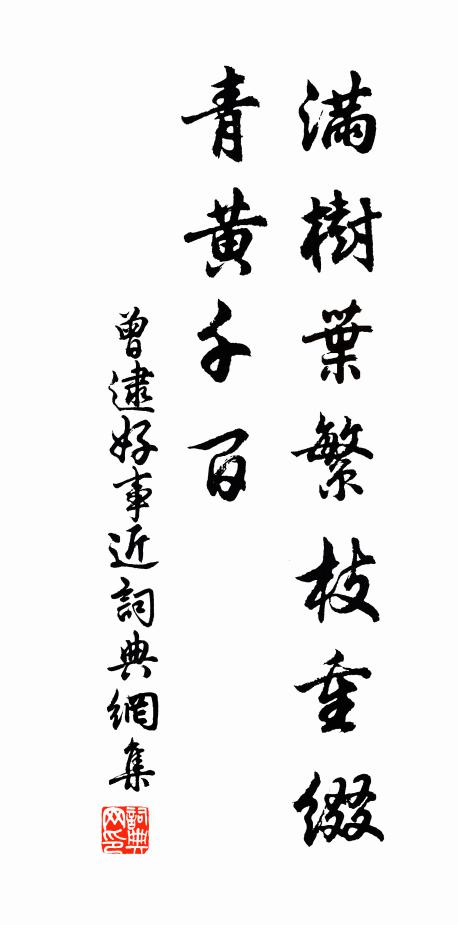 滿樹葉繁枝重綴
青黃千百
曾逮好事近詞典網集
詞典网印